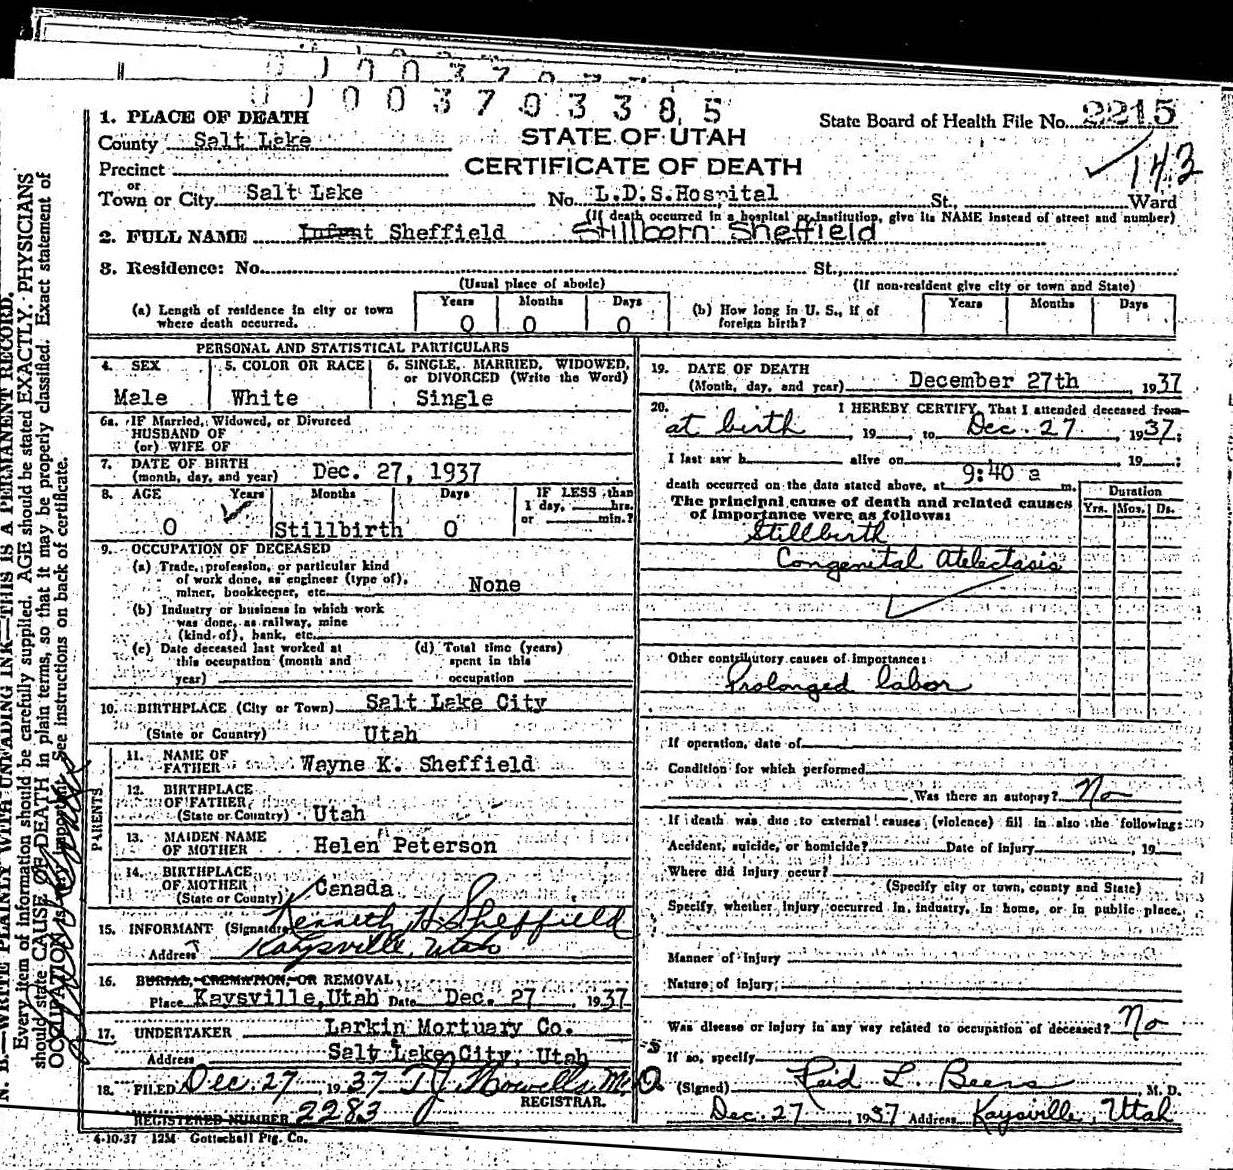 0 0 0 3 7 0 3 3 8 5
1. PLACE OF DEATH
State Board of Health File No. 2215
County Salt Lake
STATE OF UTAH
143
Precinct
CERTIFICATE OF DEATH
or
Town or City Salt Lake No. L.D.S.Hospital St., Ward
(If death occurred in a hospital or institution, give its NAME instead of street and number)
2. FULL NAME Infant Sheffield Stillborn Sheffield
3. Residence: No. St.,
(Usual place of abode) (If non-resident give city or town and State)
(a) Length of residence in city or town where death occurred. Years 0 Months 0 Days 0
(b) How long in U. S., if of foreign birth? Years Months Days
PERSONAL AND STATISTICAL PARTICULARS
4. SEX 5. COLOR OR RACE 6. SINGLE, MARRIED, WIDOWED, or DIVORCED (Write the Word)
Male White Single
6a. IF Married, Widowed, or Divorced
HUSBAND OF
(or) WIFE OF
7. DATE OF BIRTH
(month, day, and year) Dec. 27, 1937
8. AGE Years Months Days IF LESS than
1 day, hrs.
or min.?
0 Stillbirth 0
9. OCCUPATION OF DECEASED
(a) Trade, profession, or particular kind
of work done, as engineer (type of),
miner, bookkeeper, etc. None
(b) Industry or business in which work
was done, as railway, mine
(kind of), bank, etc.
(c) Date deceased last worked at
this occupation (month and
year)
(d) Total time (years)
spent in this
occupation
10. BIRTHPLACE (City or Town) Salt Lake City
(State or Country) Utah
PARENTS
11. NAME OF
FATHER Wayne K. Sheffield
12. BIRTHPLACE
OF FATHER
(State or Country) Utah
13. MAIDEN NAME
OF MOTHER Helen Peterson
14. BIRTHPLACE
OF MOTHER
(State or Country) Canada
15. INFORMANT (Signature) Kenneth H. Sheffield
Address Kaysville, Utah
16. BURIAL, CREMATION, OR REMOVAL
Place Kaysville, Utah Date Dec. 27, 1937
17. UNDERTAKER Larkin Mortuary Co.
Address Salt Lake City, Utah
18. FILED Dec. 27, 1937 T. J. Howells, M.D.
REGISTRAR.
REGISTERED NUMBER 2283
4-10-37 12M Gottschall Ptg. Co.
19. DATE OF DEATH
(Month, day, and year) December 27th, 1937
20. I HEREBY CERTIFY, That I attended deceased from
at birth, 19 , to Dec. 27 1937;
I last saw h alive on 19 ;
death occurred on the date stated above, at 9:40 a m.
The principal cause of death and related causes
of importance were as follows:
Duration
Yrs. Mos. Ds.
Stillbirth
Congenital Atelectasis
Other contributory causes of importance:
Prolonged labor
If operation, date of
Condition for which performed
Was there an autopsy? No
If death was due to external causes (violence) fill in also the following:
Accident, suicide, or homicide? Date of injury , 19
Where did injury occur?
(Specify city or town, county and State)
Specify whether injury occurred in industry, in home, or in public place.
Manner of injury
Nature of injury
Was disease or injury in any way related to occupation of deceased? No
If so, specify
(Signed) Reid L. Beers M. D.
Dec. 27, 1937 Address Kaysville, Utah
N. B.—WRITE PLAINLY WITH UNFADING INK—THIS IS A PERMANENT RECORD.
Every item of information should be carefully supplied. AGE should be stated EXACTLY. PHYSICIANS
should state CAUSE OF DEATH in plain terms, so that it may be properly classified. Exact statement of
OCCUPATION is very important. See instructions on back of certificate.